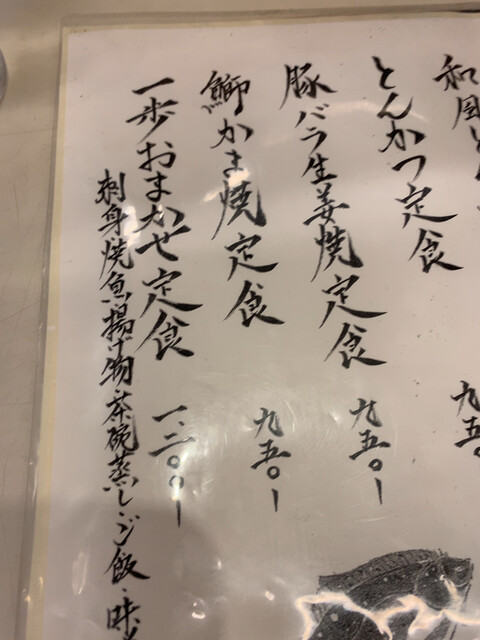 和風と
とんかつ定食 九五〇
豚バラ生姜焼定食 九五〇ー
鰤かま焼定食 九五〇ー
一歩おまかせ定食 一、三〇〇ー
刺身焼魚揚げ物・茶碗蒸し・ご飯・味